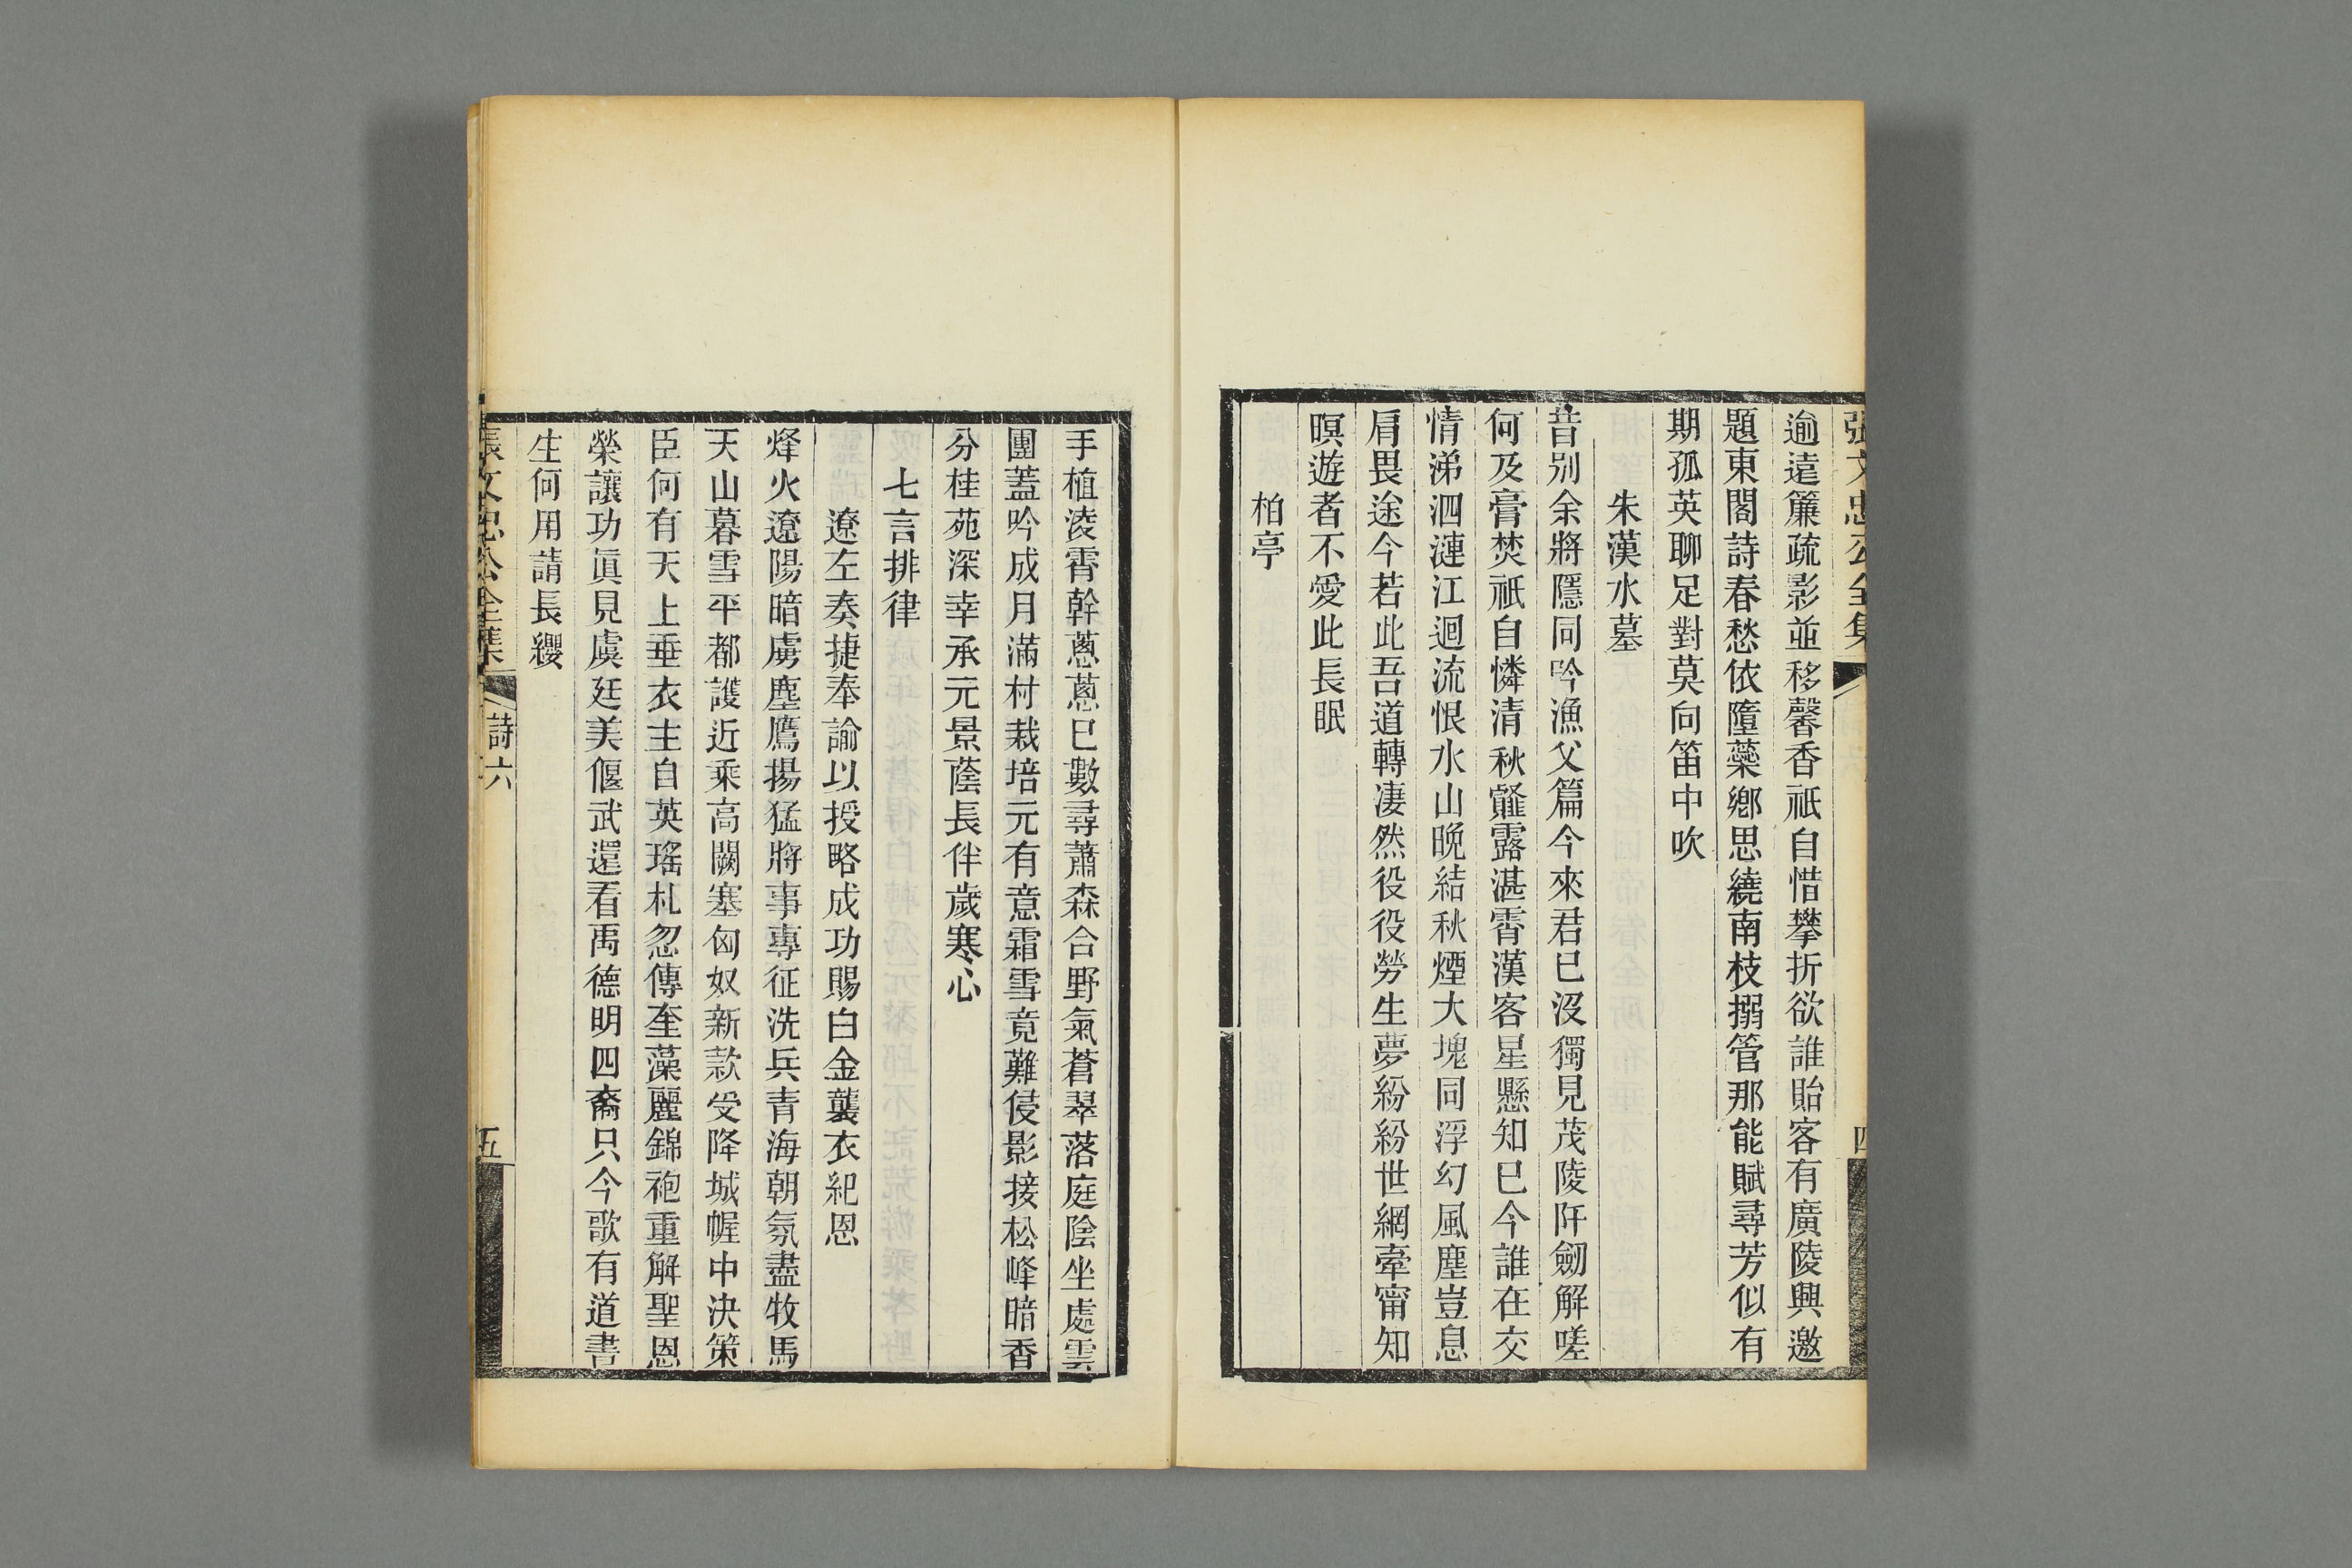 張文忠公全集
四
逾遠簾疏影並移馨香祇自惜攀折欲誰貽客有廣陵興邀
題東閣詩春愁依隴蘂鄉思繞南枝搦管那能賦尋芳似有
期孤英聊足對莫向笛中吹
朱漢水墓
昔別余將隱同吟漁父篇今來君已沒獨見茂陵阡劒解嗟
何及膏焚祇自憐清秋薤露湛霄漢客星懸知已今誰在交
情涕泗漣江迴流恨水山晚結秋煙大塊同浮幻風塵豈息
肩畏途今若此吾道轉凄然役役勞生夢紛紛世網牽甯知
暝遊者不愛此長眠
柏亭
手植凌霄幹蔥蔥已數尋蕭森合野氣蒼翠落庭陰坐處雲
團蓋吟成月滿村栽培元有意霜雪竟難侵影接松峰暗香
分桂苑深幸承元景蔭長伴歲寒心
七言排律
遼左奏捷奉諭以授略成功賜白金襲衣紀恩
烽火遼陽暗虜塵鷹揚猛將事專征洗兵青海朝氛盡牧馬
天山暮雪平都護近乘高闕塞匈奴新款受降城幄中決策
臣何有天上垂衣主自英瑤札忽傳奎藻麗錦袍重解聖恩
榮讓功眞見虞廷美偃武還看禹德明四裔只今歌有道書
生何用請長纓
張文忠公全集
詩六
五